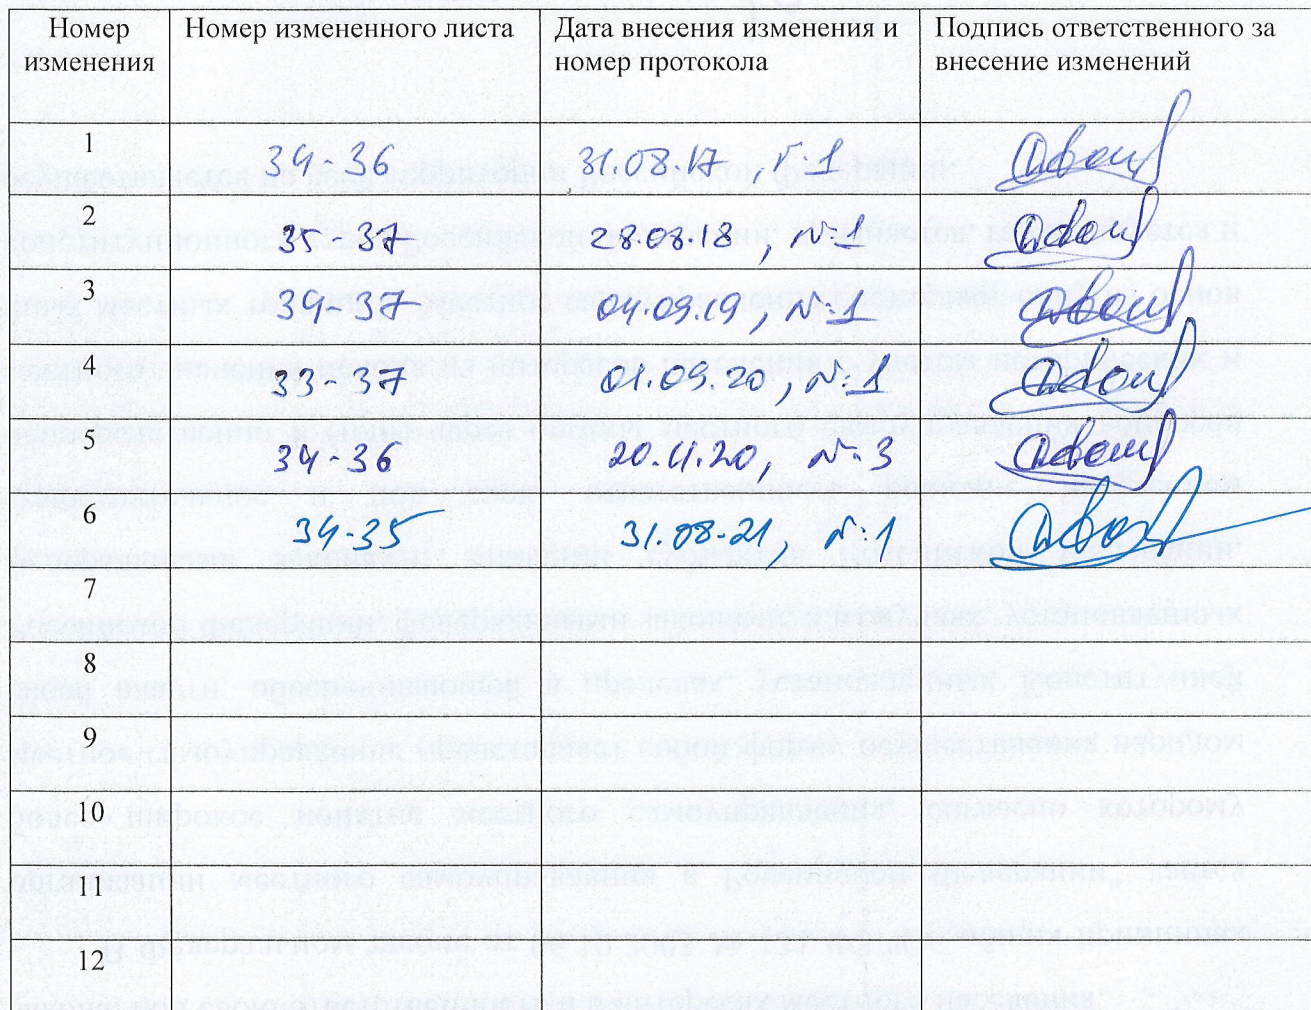 Номер изменения Номер измененного листа Дата внесения изменения и номер протокола Подпись ответственного за внесение изменений
1 34-36 31.08.17, №1
2 35-37 28.08.18, №1
3 34-37 04.09.19, №1
4 33-37 01.09.20, №1
5 34-36 20.11.20, №3
6 34-35 31.08.21, №1
7
8
9
10
11
12